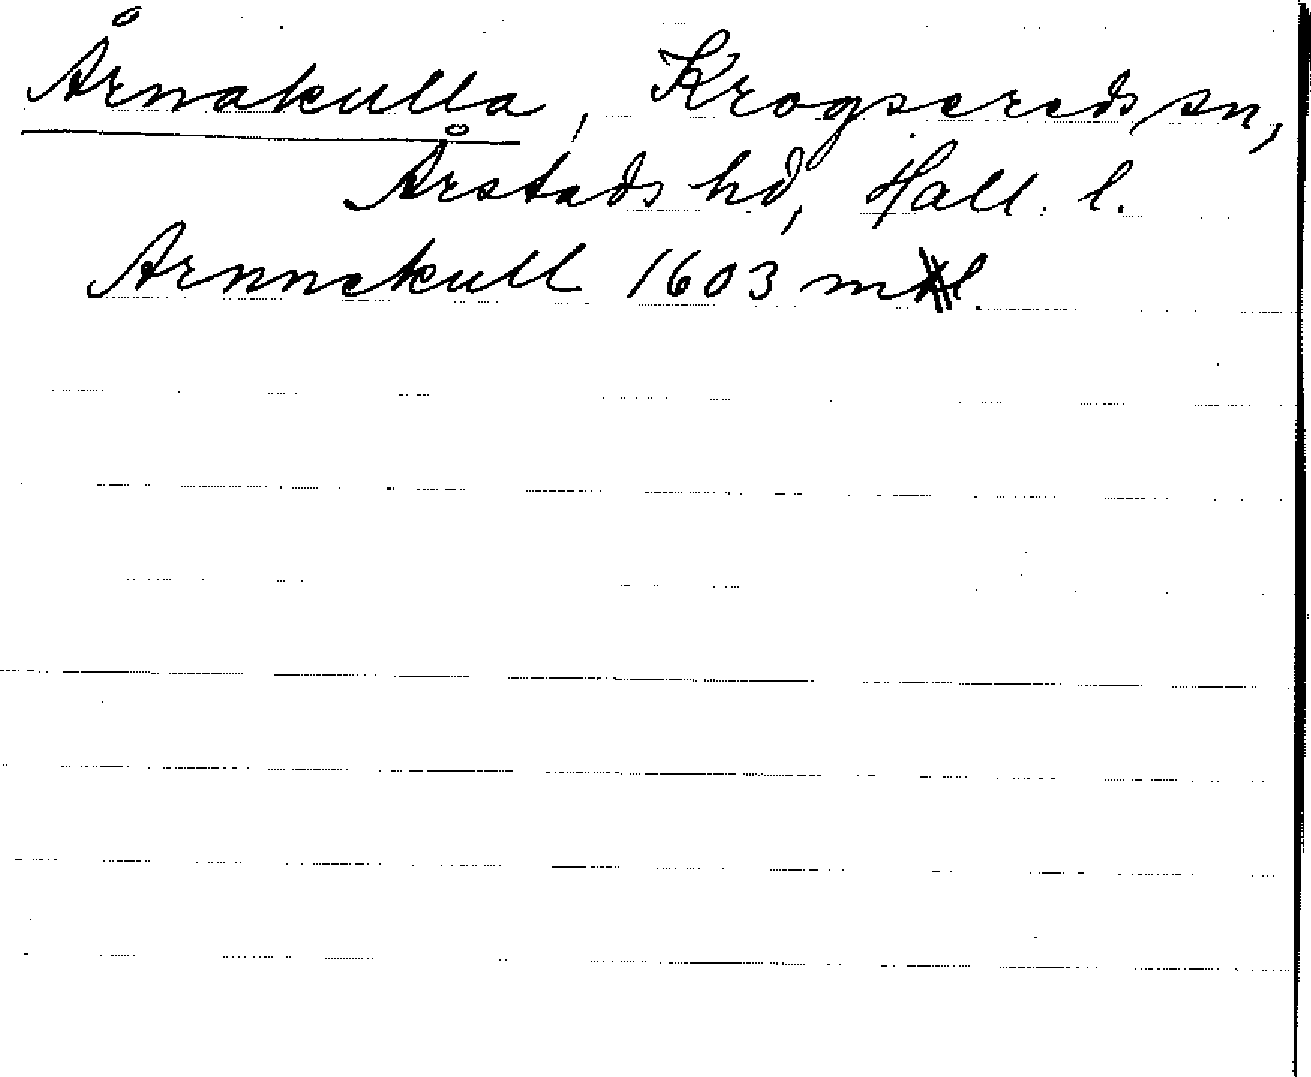 Årnakulla, Krogsereds sn,
Årstads hd, Hall. l.
Arnnekull 1603 ml.